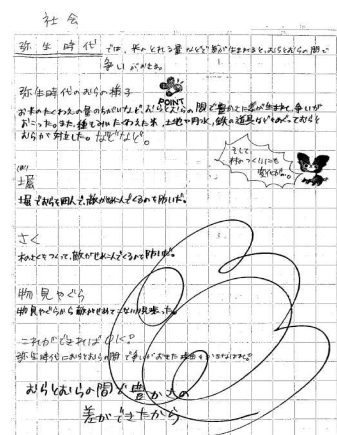 社会
弥生時代では、米のとれる量などで差が生まれると、むらとむらの間で
争いがおきる。
弥生時代のむらの様子
POINT
お米のたくわえの量のちがいなど、むらとむらの間で豊かさに差が生まれて、争いが
おこった。また、種もみや たくわえた米、土地や用水、鉄の道具などをめぐってむらと
むらが対立した。などなど。
そして、
村のつくりにも
変化が…。
(ほり)
堀
堀でむらを囲んで、敵がせめこんでくるのを防いだ。
さく
木のさくをつくって、敵がせめこんでくるのを防いだ。
物見やぐら
物見やぐらから敵がせめてこないか見張った。
これができればいい?
弥生時代にむらとむらの間で争いがおきた
むらとむらの間で豊かさの
差ができたから